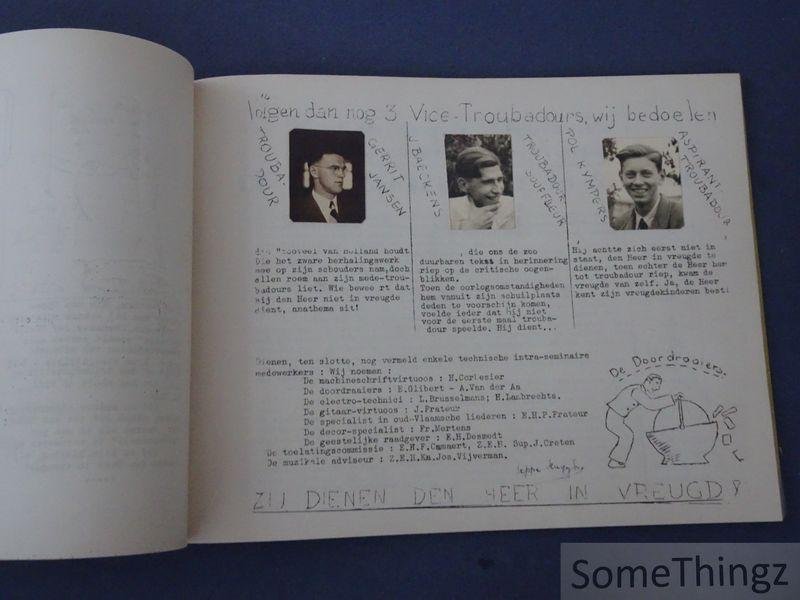 Volgen dan nog 3 Vice-Troubadours, wij bedoelen
TROUBA-
DOUR
GERRIT
JANSEN
J BAECKENS
TROUBADOUR
SOUFFLEUR
POL KYMPERS
ASPIRANT-
TROUBADOUR
die "zooveel van Holland houdt
Die het zware herhalingswerk
mee op zijn schouders nam, doch
allen roem aan zijn mede-trou-
badours liet. Wie beweert dat
hij den Heer niet in vreugde
dient, anathema sit!
, die ons de zoo
duurbaren tekst in herinnering
riep op de critische oogen-
blikken.
Toen de oorlogsomstandigheden
hem vanuit zijn schuilplaats
deden te voorschijn komen,
voelde ieder dat hij niet
voor de eerste maal trouba-
dour speelde. Hij dient...
Hij achtte zich eerst niet in
staat, den Heer in vreugde te
dienen, toen echter de Heer hem
tot troubadour riep, kwam de
vreugde van zelf. Ja, de Heer
kent zijn vreugdekinderen best!
Dienen, ten slotte, nog vermeld enkele technische intra-seminaire
medewerkers : Wij noemen :
De machineschriftvirtuoos : H.Corlesier
De doordraaiers : E.Glibert - A.Van der Aa
De electro-technici : L.Brusselmans; H.Lambrechts.
De gitaar-virtuoos : J.Frateur
De specialist in oud-Vlaamsche liederen : E.H.P.Frateur
De decor-specialist : Fr.Mertens
De geestelijke raadgever : E.H.Desmedt
De toelatingscommissie : E.H.F.Cammaert, Z.E.H. Sup.J.Creten
De muzikale adviseur : Z.E.H.Kn.Jos.Vijverman.
De Doordraaiers.
ZIJ DIENEN DEN HEER IN VREUGD
SomeThingz